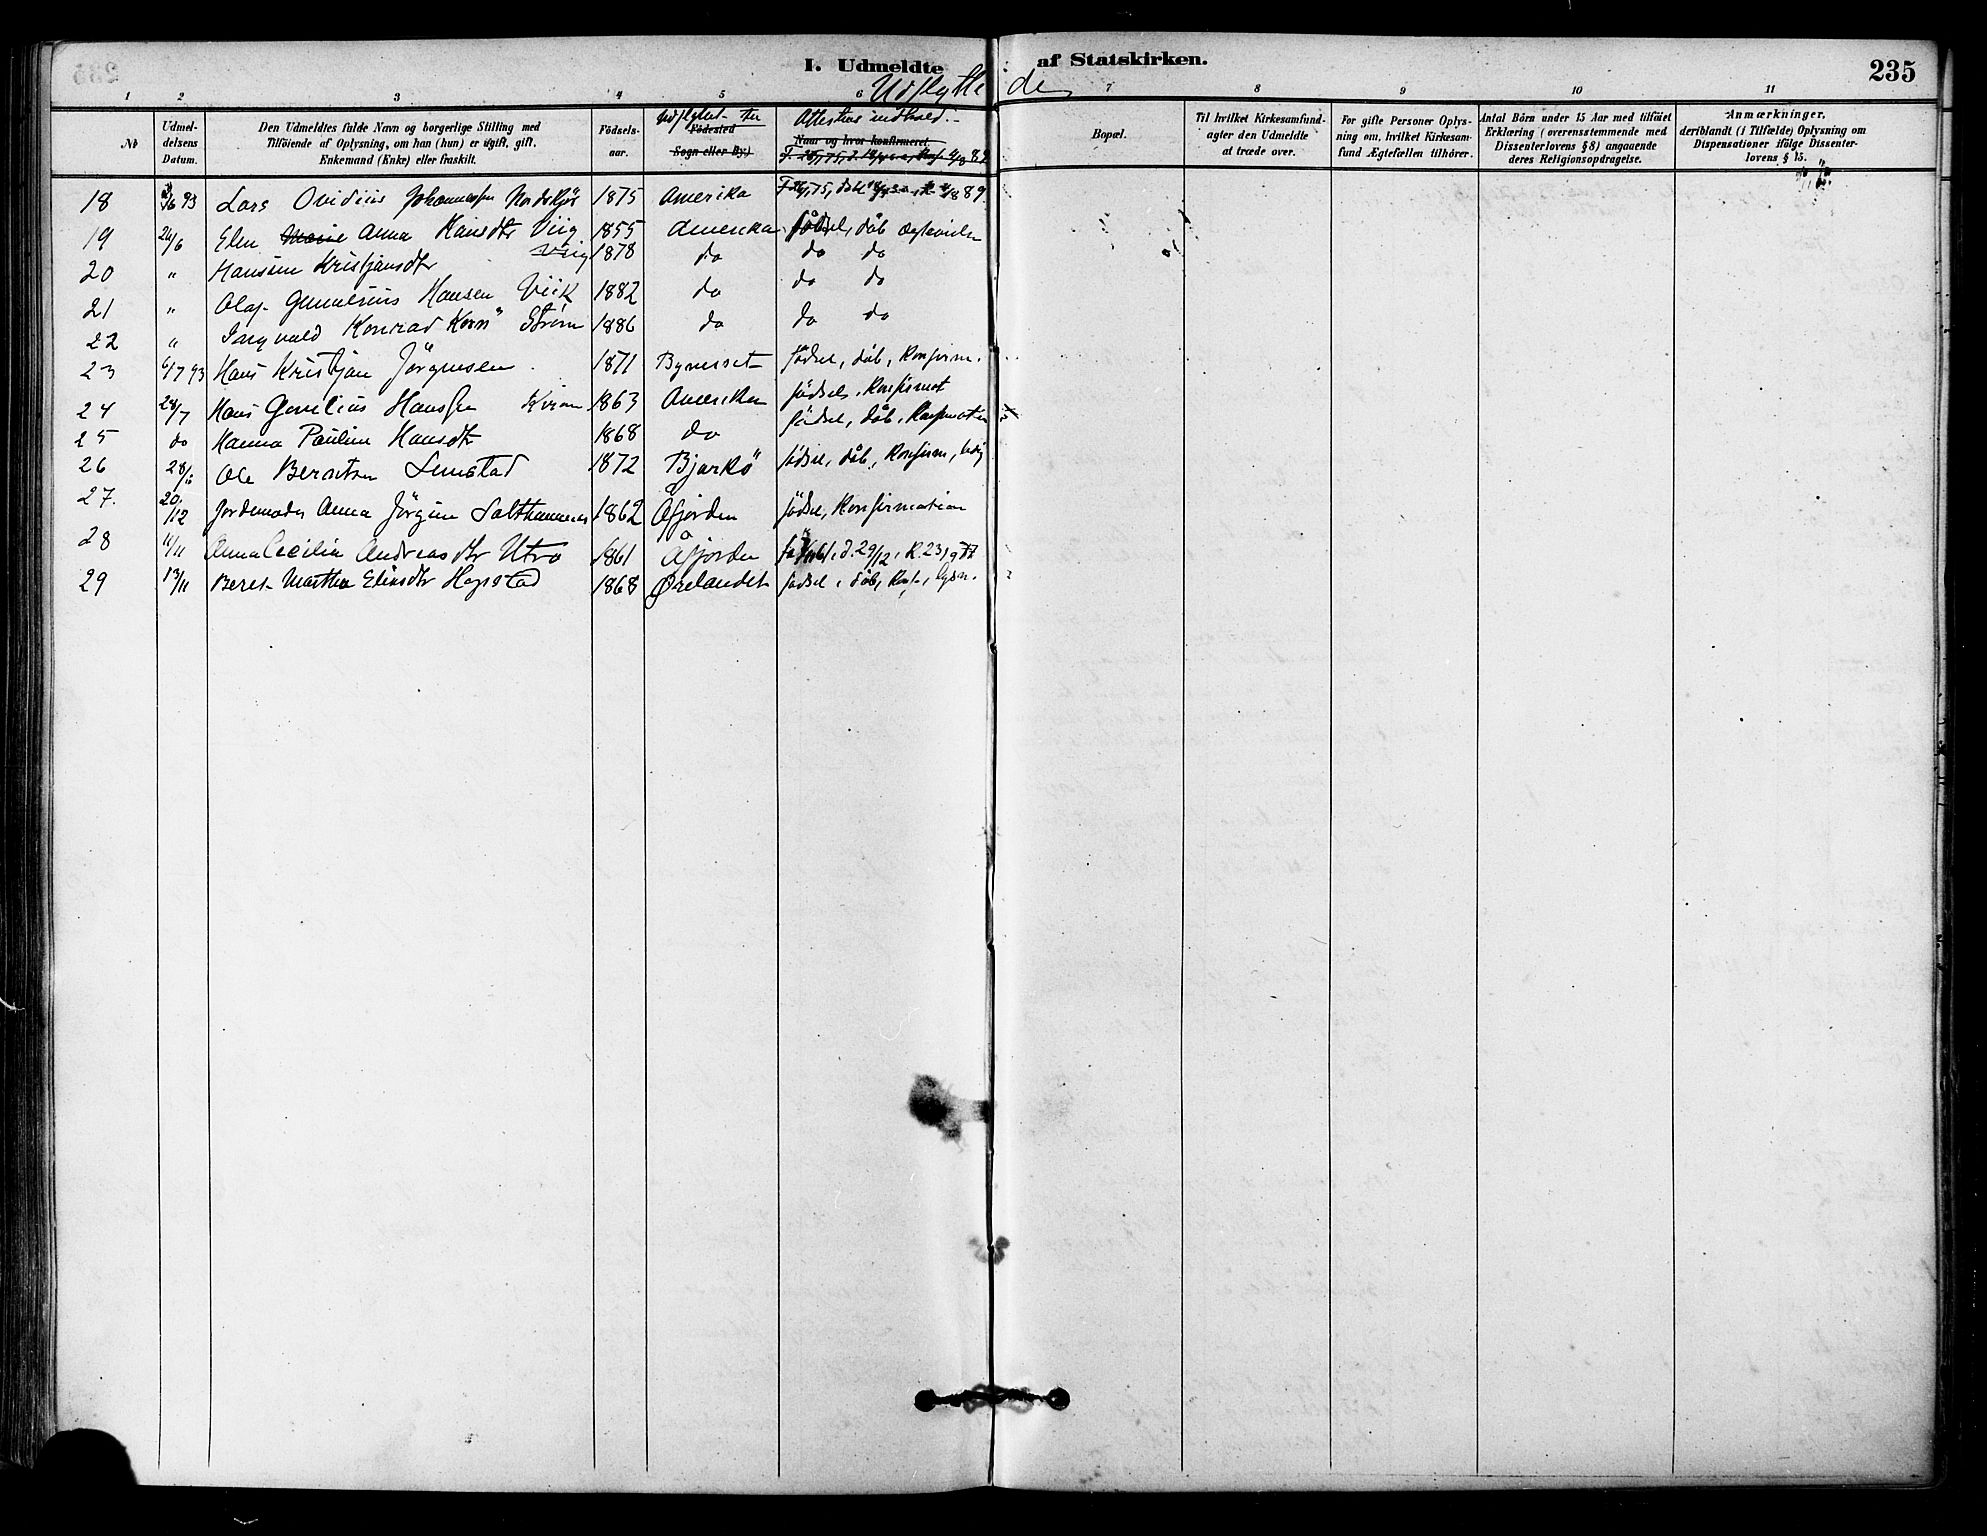 I. Udmeldte af Statskirken. 235
Udflyttede
1 2 3 4 5 6 7 8 9 10 11
№
Udmel-
delsens
Datum.
Den Udmeldtes fulde Navn og borgerlige Stilling med
Tilföiende af Oplysning, om han (hun) er ugift, gift,
Enkemand (Enke) eller fraskilt.
Födsels-
aar.
Udflyttet til
Födested
Sogn eller By.)
Attestens indhold.
Naar og hvor konfirmeret.
Bopæl.
Til hvilket Kirkesamfund-
agter den Udmeldte
at træde over.
For gifte Personer Oplys-
ning om, hvilket Kirkesam-
fund Ægtefællen tilhörer.
Antal Börn under 15 Aar med tilföiet
Erklæring (overensstemmende med
Dissenterlovens § 8) angaaende
deres Religionsopdragelse.
Anmærkninger,
deriblandt (i Tilfælde) Oplysning om
Dispensationer ifölge Dissenter-
lovens § 15.
18 93 Lars Ovidius Johannessen 1875 Amerika
19 24/6 Elen Marie Anna Hansdtr Viig 1855 Amerika födsel, dåb
20 " Hansine Kristjansdtr Viig 1878 do do do
21 " Olaf Hansen Viik 1882 do do do
22 " Ingvald Konrad Strøm 1886 do do do
23 6/7 93 Hans Kristjan Jörgensen 1871 Bynesset födsel, dåb, Konfirm.
24 24/7 Hans Hansen 1863 Amerika födsel, Konfirmat
25 do Hanna Pauline Hansdtr 1868 do födsel, dåb, Konfirmation
26 Ole Berntsen 1872 Bjarkö födsel, dåb, Konfirm, ledig
27. 20/12 Jordemoder Anna Jörgine 1862 Åfjorden födsel, Konfirmation
28 11/11 Anna Cecilia Andreasdtr Utro 1861 Åfjorden d. 29/12, K.
29 13/11 Beret Martha Eliasdtr Hopstad 1868 Ørelandet födsel, dåb, Konf.,